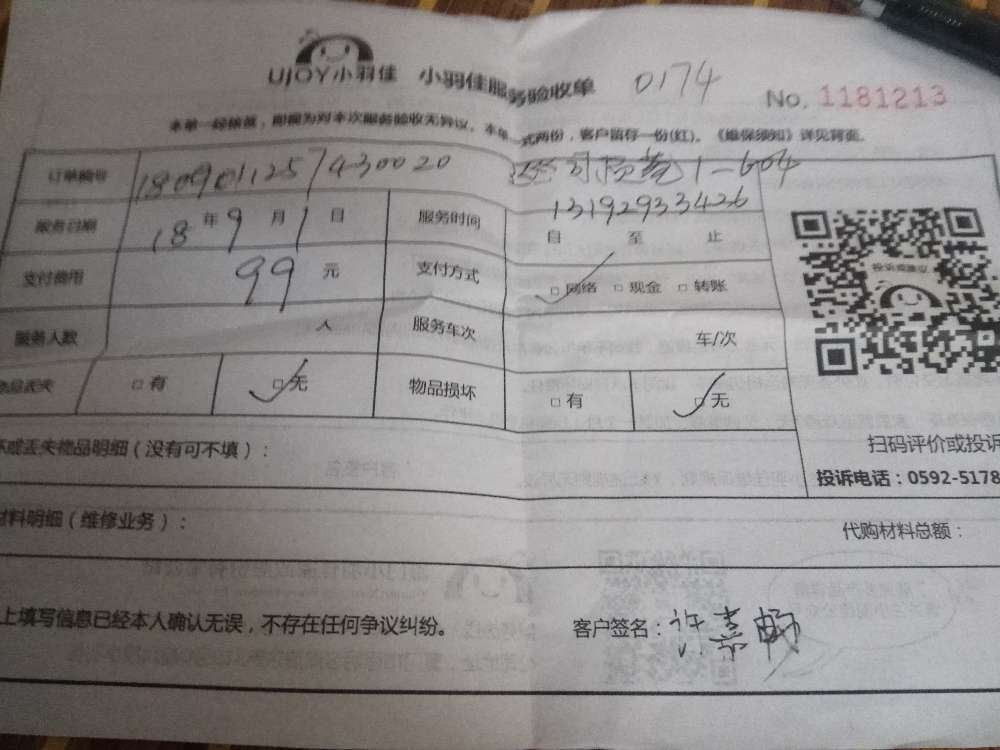 UJOY小羽佳 小羽佳服务验收单 0174 No. 1181213
本单一经核签，即视为对本次服务验收无异议。本单一式两份，客户留存一份(红)。《维保须知》详见背面。
订单编号 1809011257430020 1-604
13192933426
服务日期 18年9月1日 服务时间 自 至 止
支付费用 99元 支付方式 □网络 □现金 □转账
投诉或建议
服务人数 人 服务车次 车/次
物品丢失 □有 □无 物品损坏 □有 □无
坏或丢失物品明细（没有可不填）： 扫码评价或投诉
投诉电话：0592-5178
材料明细（维修业务）： 代购材料总额：
上填写信息已经本人确认无误，不存在任何争议纠纷。 客户签名：许嘉畅